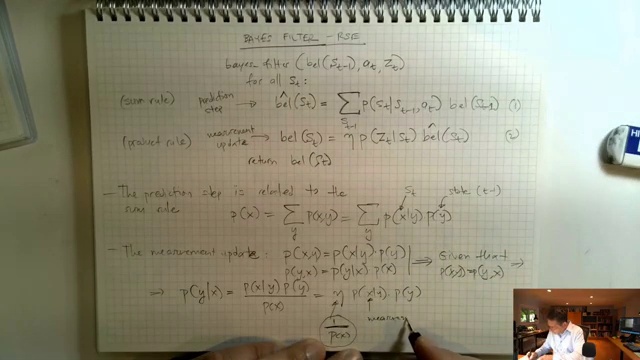 BAYES FILTER - RSE
bayes filter (bel(S_{t-1}), a_t, Z_t)
for all S_t:
(sum rule) prediction step → b̂el(S_t) = Σ_{S_{t-1}} p(S_t|S_{t-1}, a_t) bel(S_{t-1}) (1)
(product rule) measurement update → bel(S_t) = η p(Z_t|S_t) b̂el(S_t) (2)
return bel(S_t)
S_t state (t-1)
- The prediction step is related to the
sum rule p(x) = Σ_y p(x,y) = Σ_y p(x|y) p(y)
- The measurement update: p(x,y) = p(x|y) · p(y)
p(y,x) = p(y|x) p(x) ⟹ Given that p(x,y) = p(y,x) ⟹
⟹ p(y|x) = p(x|y) p(y) / p(x) = η p(x|y) · p(y)
1 / p(x)
HI